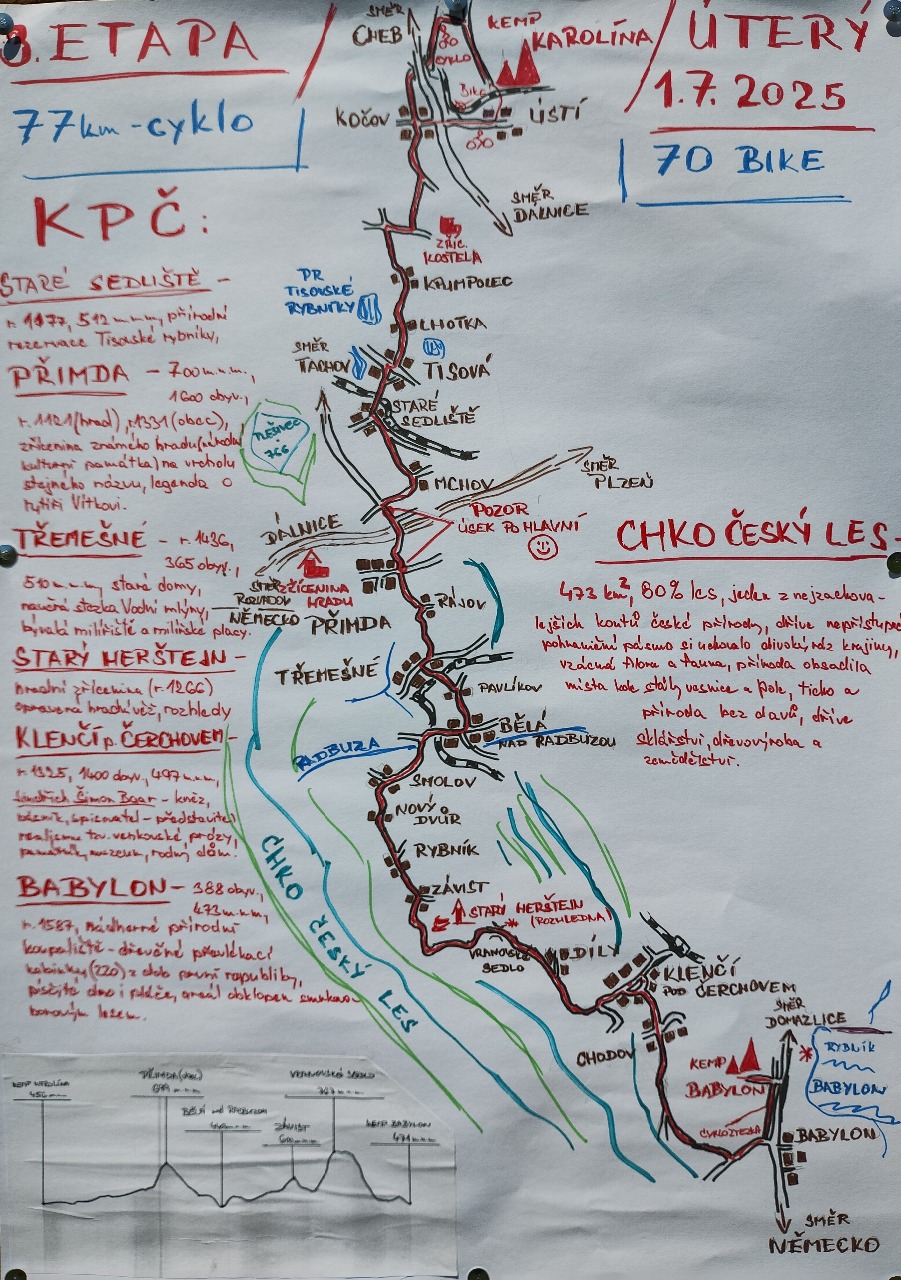 3. ETAPA
77km - cyklo
ÚTERÝ
1.7. 2025
70 BIKE
KPČ:
STARÉ SEDLIŠTĚ -
r. 1177, 512 m.n.m, přírodní
rezervace Tisovské rybníky,
PŘIMDA - 700 m.n.m.,
1600 obyv.,
r. 1121 (hrad), r. 1331 (obec),
zřícenina známého hradu (národní
kulturní památka) na vrcholu
stejného názvu, legenda o
rytíři Vítkovi.
TŘEMEŠNÉ - r. 1436,
365 obyv.,
510 m.n.m, staré domy,
naučná stezka Vodní mlýny,
bývalá milířiště a milířské placy.
STARÝ HERŠTEJN -
hradní zřícenina (r. 1266)
opravená hradní věž, rozhledy
KLENČÍ p. ČERCHOVEM -
r. 1325, 1400 obyv., 497 m.n.m,
Jindřich Šimon Baar - kněz,
básník, spisovatel - představitel
realismu tzv. venkovské prózy,
památník, muzeum, rodný dům.
BABYLON - 388 obyv.,
473 m.n.m,
r. 1587, nádherné přírodní
koupaliště - dřevěné převlékací
kabinky (220) z dob první republiky,
písčité dno i pláže, areál obklopen smrkovo
borovým lesem.
SMĚR
CHEB
CYKLO
KEMP
KAROLÍNA
Bike
KOČOV
ÚSTÍ
SMĚR
DÁLNICE
ZŘÍC.
KOSTELA
KRUMPOLEC
PR
TISOVSKÉ
RYBNÍKY
LHOTKA
SMĚR
TACHOV
TISOVÁ
STARÉ
SEDLIŠTĚ
766
MCHOV
SMĚR
PLZEŇ
DÁLNICE
POZOR
ÚSEK PO HLAVNÍ
SMĚR
ROZVADOV
NĚMECKO
ZŘÍCENINA
HRADU
PŘIMDA
RÁJOV
TŘEMEŠNÉ
PAVLÍKOV
RADBUZA
BĚLÁ
NAD RADBUZOU
SMOLOV
NOVÝ
DVŮR
RYBNÍK
ZÁVIST
STARÝ HERŠTEJN
(ROZHLEDNA)
VRANOVSKÉ
SEDLO
DÍLY
KLENČÍ
POD ČERCHOVEM
CHODOV
CHKO ČESKÝ LES
SMĚR
DOMAŽLICE
KEMP
BABYLON
RYBNÍK
BABYLON
CYKLOSTEZKA
BABYLON
SMĚR
NĚMECKO
CHKO ČESKÝ LES -
473 km², 80% les, jeden z nejzachova-
lejších koutů české přírody, dříve nepřístupné
pohraniční pásmo si uchovalo divoký ráz krajiny,
vzácná flora a fauna, příroda obsadila
místa kde stály vesnice a pole, ticho a
příroda bez davů, dříve
sklářství, dřevovýroba a
zemědělství.
KEMP KAROLÍNA
456 m.n.m
PŘIMDA (obec)
679 m.n.m
BĚLÁ nad RADBUZOU
ZÁVIST
VRANOVSKÉ SEDLO
KEMP BABYLON
471 m.n.m